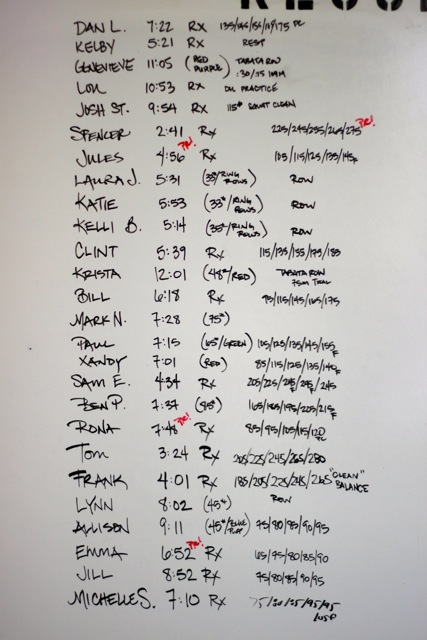 DAN L. 7:22 Rx 135/145/155/165/175 PC
KELBY 5:21 Rx REST
GENEVIEVE 11:05 (RED PURPLE) TABATA ROW :30/:15
LOU 10:53 Rx DU PRACTICE
JOSH ST. 9:54 Rx 115# SQUAT CLEAN
SPENCER 2:41 Rx 225/245/255/265/275 PR!
JULES 4:56 PR! Rx 105/115/125/135/145F
LAURA J. 5:31 (33#/RING ROWS) ROW
KATIE 5:53 (33#/RING ROWS) ROW
KELLI B. 5:14 (35#/RING ROWS) ROW
CLINT 5:39 Rx 115/135/155/175/185
KRISTA 12:01 (48#/RED) TABATA ROW
BILL 6:18 Rx 95/115/145/165/175
MARK N. 7:28 (75#)
PAUL 7:15 (65#/GREEN) 105/125/135/145/155F
XANDY 7:01 (RED) 85/115/125/135/140F
SAM E. 4:34 Rx 205/225/245F/245F/245
BEN P. 7:37 (95#) 165/185/195/205/215F
RONA 7:48 PR! Rx 85/95/105/115/120 PC
TOM 3:24 Rx 205/225/245/265/280
FRANK 4:01 Rx 185/205/225/245/265 "CLEAN" BALANCE
LYNN 8:02 (45#) ROW
ALLISON 9:11 (45#/BLUE) 75/80/85/90/95
EMMA 6:52 PR! Rx 65/75/80/85/90
JILL 8:52 Rx 75/80/85/90/95
MICHELLE S. 7:10 Rx